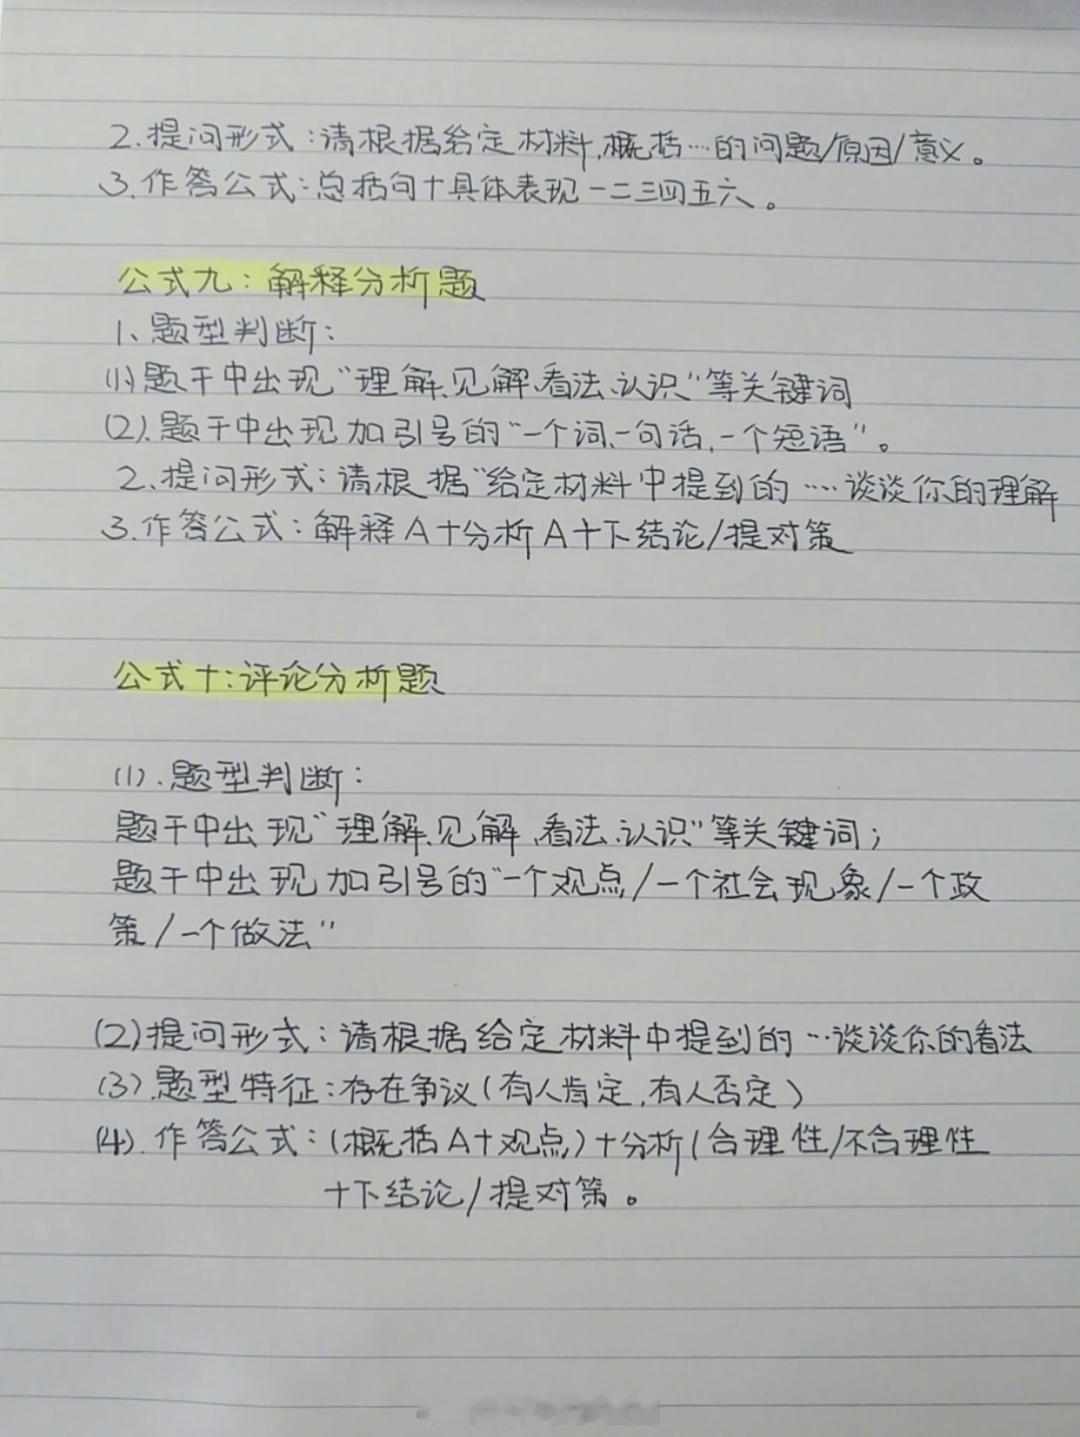 2.提问形式:请根据给定材料,概括…的问题/原因/意义。
3.作答公式:总括句+具体表现一二三四五六。
公式九:解释分析题
1、题型判断:
(1)、题干中出现“理解、见解、看法、认识”等关键词
(2)、题干中出现加引号的“一个词、一句话、一个短语”。
2、提问形式:请根据“给定材料中提到的……谈谈你的理解
3.作答公式:解释A+分析A+下结论/提对策
公式十:评论分析题
(1).题型判断:
题干中出现“理解、见解、看法、认识”等关键词;
题干中出现加引号的“一个观点/一个社会现象/一个政
策/一个做法”
(2)提问形式:请根据给定材料中提到的…谈谈你的看法
(3).题型特征:存在争议(有人肯定,有人否定)
(4).作答公式:(概括A+观点)+分析(合理性/不合理性
+下结论/提对策。